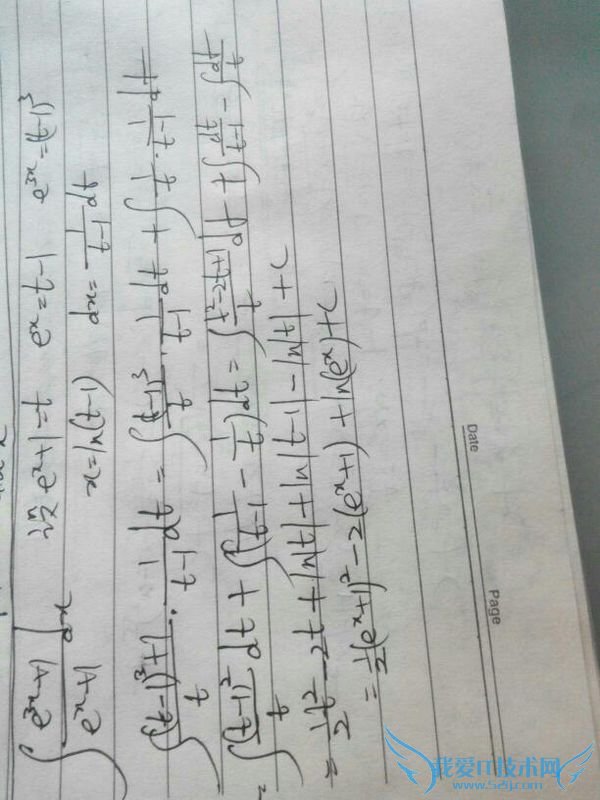 ∫ (e^{3x}+1)/(e^x+1) dx 设 e^x+1=t e^x=t-1 e^{3x}=(t-1)^3
x=ln(t-1) dx=1/(t-1) dt
∫ ((t-1)^3+1)/t · 1/(t-1) dt = ∫ (t-1)^3/t · 1/(t-1) dt + ∫ 1/t · 1/(t-1) dt
= ∫ (t-1)^2/t dt + ∫(1/(t-1) - 1/t)dt = ∫ (t^2-2t+1)/t dt + ∫ dt/(t-1) - ∫ dt/t
= 1/2 t^2 - 2t + ln|t| + ln|t-1| - ln|t| + C
= 1/2 (e^x+1)^2 - 2(e^x+1) + ln(e^x) + C
Date
Page
我爱IT技术网
www.52ij.com